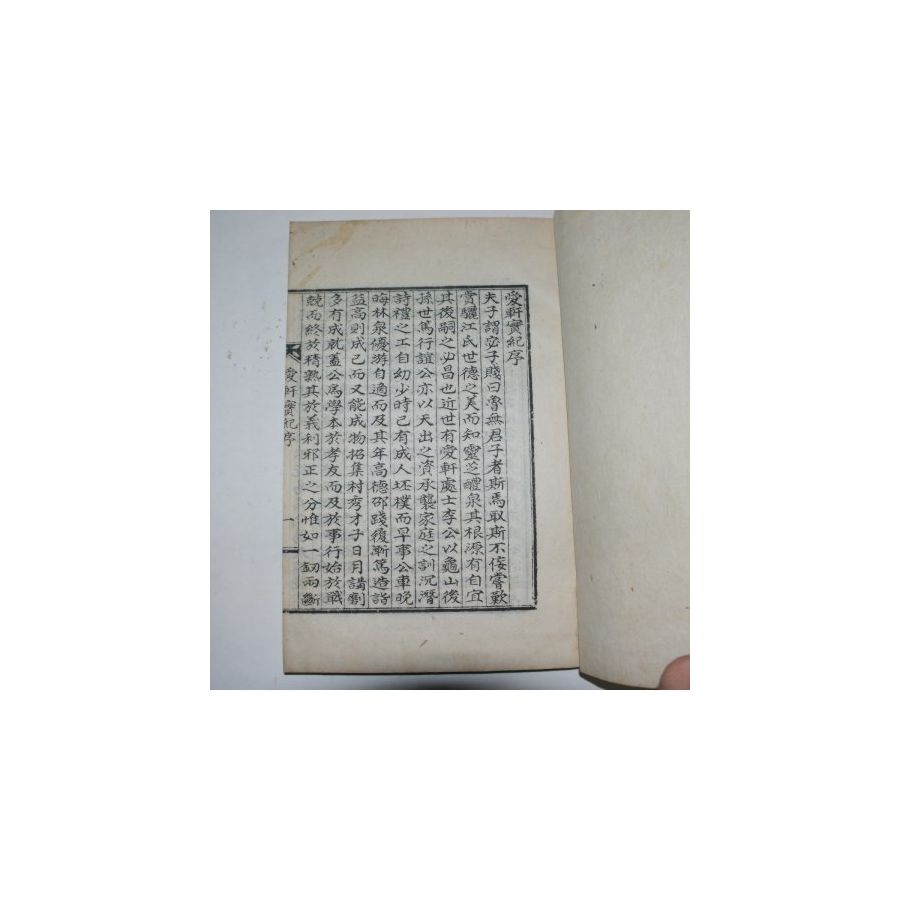 愛軒實紀序
夫子謂宓子賤曰魯無君子者斯焉取斯不侫嘗歎
賞驪江氏世德之美而知靈芝醴泉其根源有自宜
其後嗣之必昌也近世有愛軒處士李公以龜山後
孫世篤行誼公亦以天出之資承襲家庭之訓沉潛
詩禮之工自幼少時已有成人坯樸而早事公車晚
晦林泉優游自適而及其年高德卲踐履漸篤造詣
益高則成己而又能成物招集村秀才子日月講劘
多有成就盖公爲學本於孝友而及於事行始於戰
兢而終於精熟其於義利邪正之分惟如一釼兩斷
愛軒實紀序
一